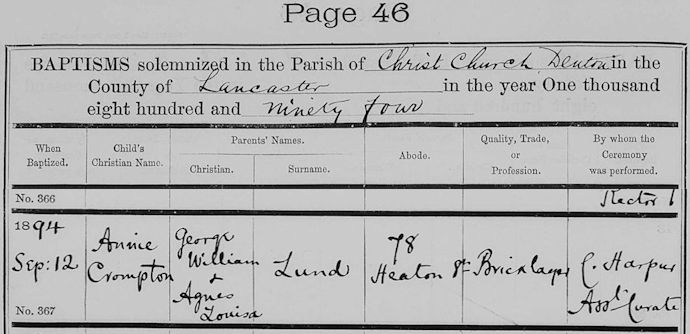 Page 46
BAPTISMS solemnized in the Parish of Christ Church Denton in the
County of Lancaster in the year One thousand
eight hundred and ninety four
When Baptized.
Child's Christian Name.
Parents' Names.
Christian.
Surname.
Abode.
Quality, Trade, or Profession.
By whom the Ceremony was performed.
No. 366
Rector
1894
Sep: 12
No. 367
Annie
Crompton
George
William
&
Agnes
Louisa
Lund
78
Heaton St
Bricklayer
C. Harpur
Asst Curate